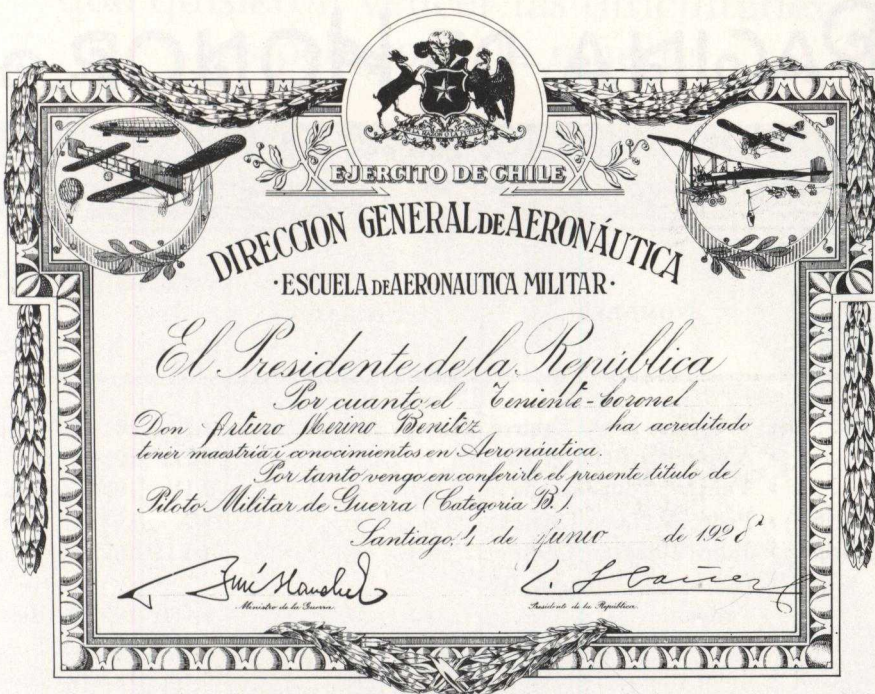 EJERCITO DE CHILE
DIRECCION GENERAL DE AERONÁUTICA
·ESCUELA DE AERONAUTICA MILITAR·
El Presidente de la República
Por cuanto el Teniente-Coronel
Don Arturo Merino Benitez ha acreditado
tener maestria i conocimientos en Aeronáutica.
Por tanto vengo en conferirle el presente titulo de
Piloto Militar de Guerra (Categoria B.).
Santiago, 4 de Junio de 1928
Ministro de la Guerra
Presidente de la República.